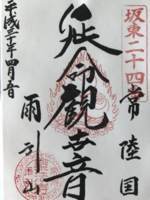 坂東二十四
常陸国
延命観世音
雨引山
平成三十年四月